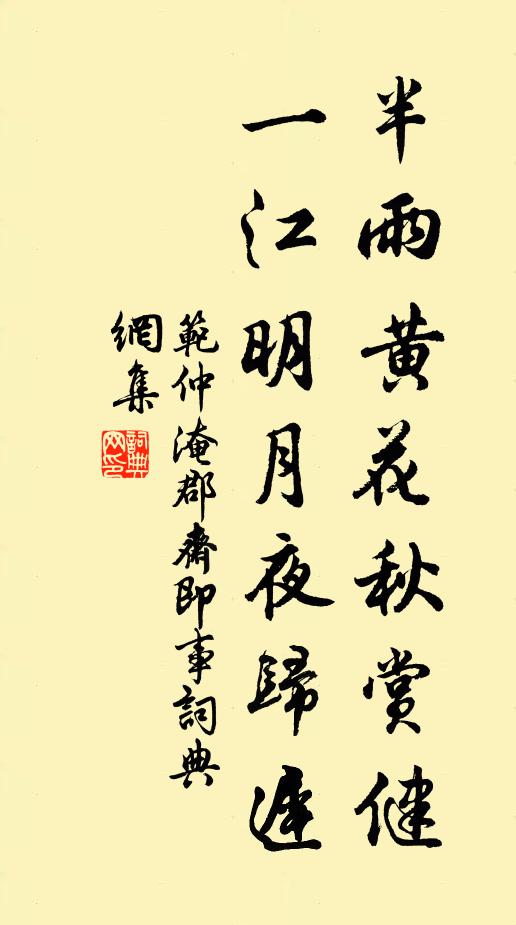 半雨黃花秋賞健
一江明月夜歸遲
範仲淹郡齋即事詞典
網集
詞典
网印